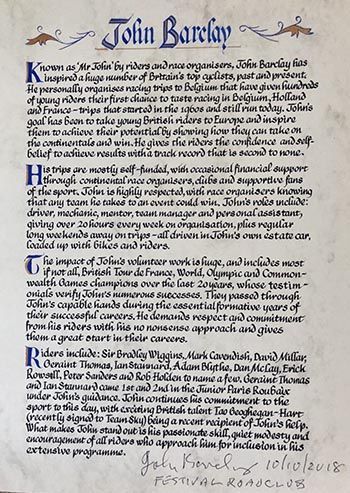 John Barclay
Known as 'Mr John' by riders and race organisers, John Barclay has
inspired a huge number of Britain's top cyclists, past and present.
He personally organises racing trips to Belgium that have given hundreds
of young riders their first chance to taste racing in Belgium, Holland
and France - trips that started in the 1960s and still run today. John's
goal has been to take young British riders to Europe and inspire
them to achieve their potential by showing how they can take on
the continentals and win. He gives the riders the confidence and self-
belief to achieve results with a track record that is second to none.
His trips are mostly self-funded, with occasional financial support
through continental race organisers, clubs and supportive fans
of the sport. John is highly respected, with race organisers knowing
that any team he takes to an event could win. John's roles include:
driver, mechanic, mentor, team manager and personal assistant,
giving over 20 hours every week on organisation, plus regular
long weekends away on trips - all driven in John's own estate car,
loaded up with bikes and riders.
The impact of John's volunteer work is huge, and includes most
if not all, British Tour de France, World, Olympic and Common-
wealth Games champions over the last 20 years, whose testim-
onials verify John's numerous successes. They passed through
John's capable hands during the essential formative years of
their successful careers. He demands respect and commitment
from his riders with his no nonsense approach and gives
them a great start in their careers.
Riders include: Sir Bradley Wiggins, Mark Cavendish, David Millar,
Geraint Thomas, Ian Stannard, Adam Blythe, Dan McLay, Erick
Rowsell, Peter Kennaugh and Rob Holden to name a few. Geraint Thomas
and Ian Stannard came 1st and 2nd in the Junior Paris Roubaix
under John's guidance. John continues his commitment to the
sport to this day, with exciting British talent Tao Geoghegan-Hart
(recently signed to Team Sky) being a recent recipient of John's help.
What makes John stand out is his passionate skill, quiet modesty and
encouragement of all riders who approach him for inclusion in his
extensive programme.
John 10/10/2018
FESTIVAL ROAD CLUB